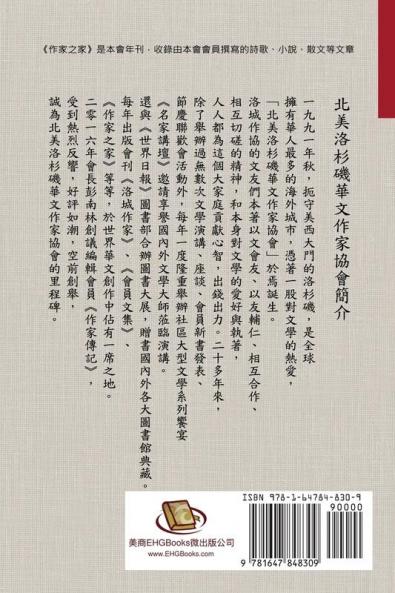 《作家之家》是本會年刊，收錄由本會會員撰寫的詩歌、小說、散文等文章
北美洛杉磯華文作家協會簡介
一九九一年秋，扼守美西大門的洛杉磯，是全球
擁有華人最多的海外城市，憑著一股對文學的熱愛，
「北美洛杉磯華文作家協會」於焉誕生。
洛城作協的文友們本著以文會友、以友輔仁、相互合作、
相互切磋的精神，和本身對文學的愛好與執著，
人人都為這個大家庭貢獻心智，出錢出力。二十多年來，
除了舉辦過無數次文學演講、座談、會員新書發表、
節慶聯歡會活動外，每年一度隆重舉辦社區大型文學系列饗宴
《名家講壇》邀請享譽國內外文學大師蒞臨演講。
還與《世界日報》圖書部合辦圖書大展，贈書國內外各大圖書館典藏。
每年出版會刊《洛城作家》、《會員文集》、
《作家之家》等等，於世界華文創作中佔有一席之地。
二零一六年會長彭南林創議編輯會員《作家傳記》，
受到熱烈反響，好評如潮，空前創舉，
誠為北美洛杉磯華文作家協會的里程碑。
EHGBooks
美商EHGBooks微出版公司
www.EHGBooks.com
ISBN 978-1-64784-830-9
90000
9 781647 848309